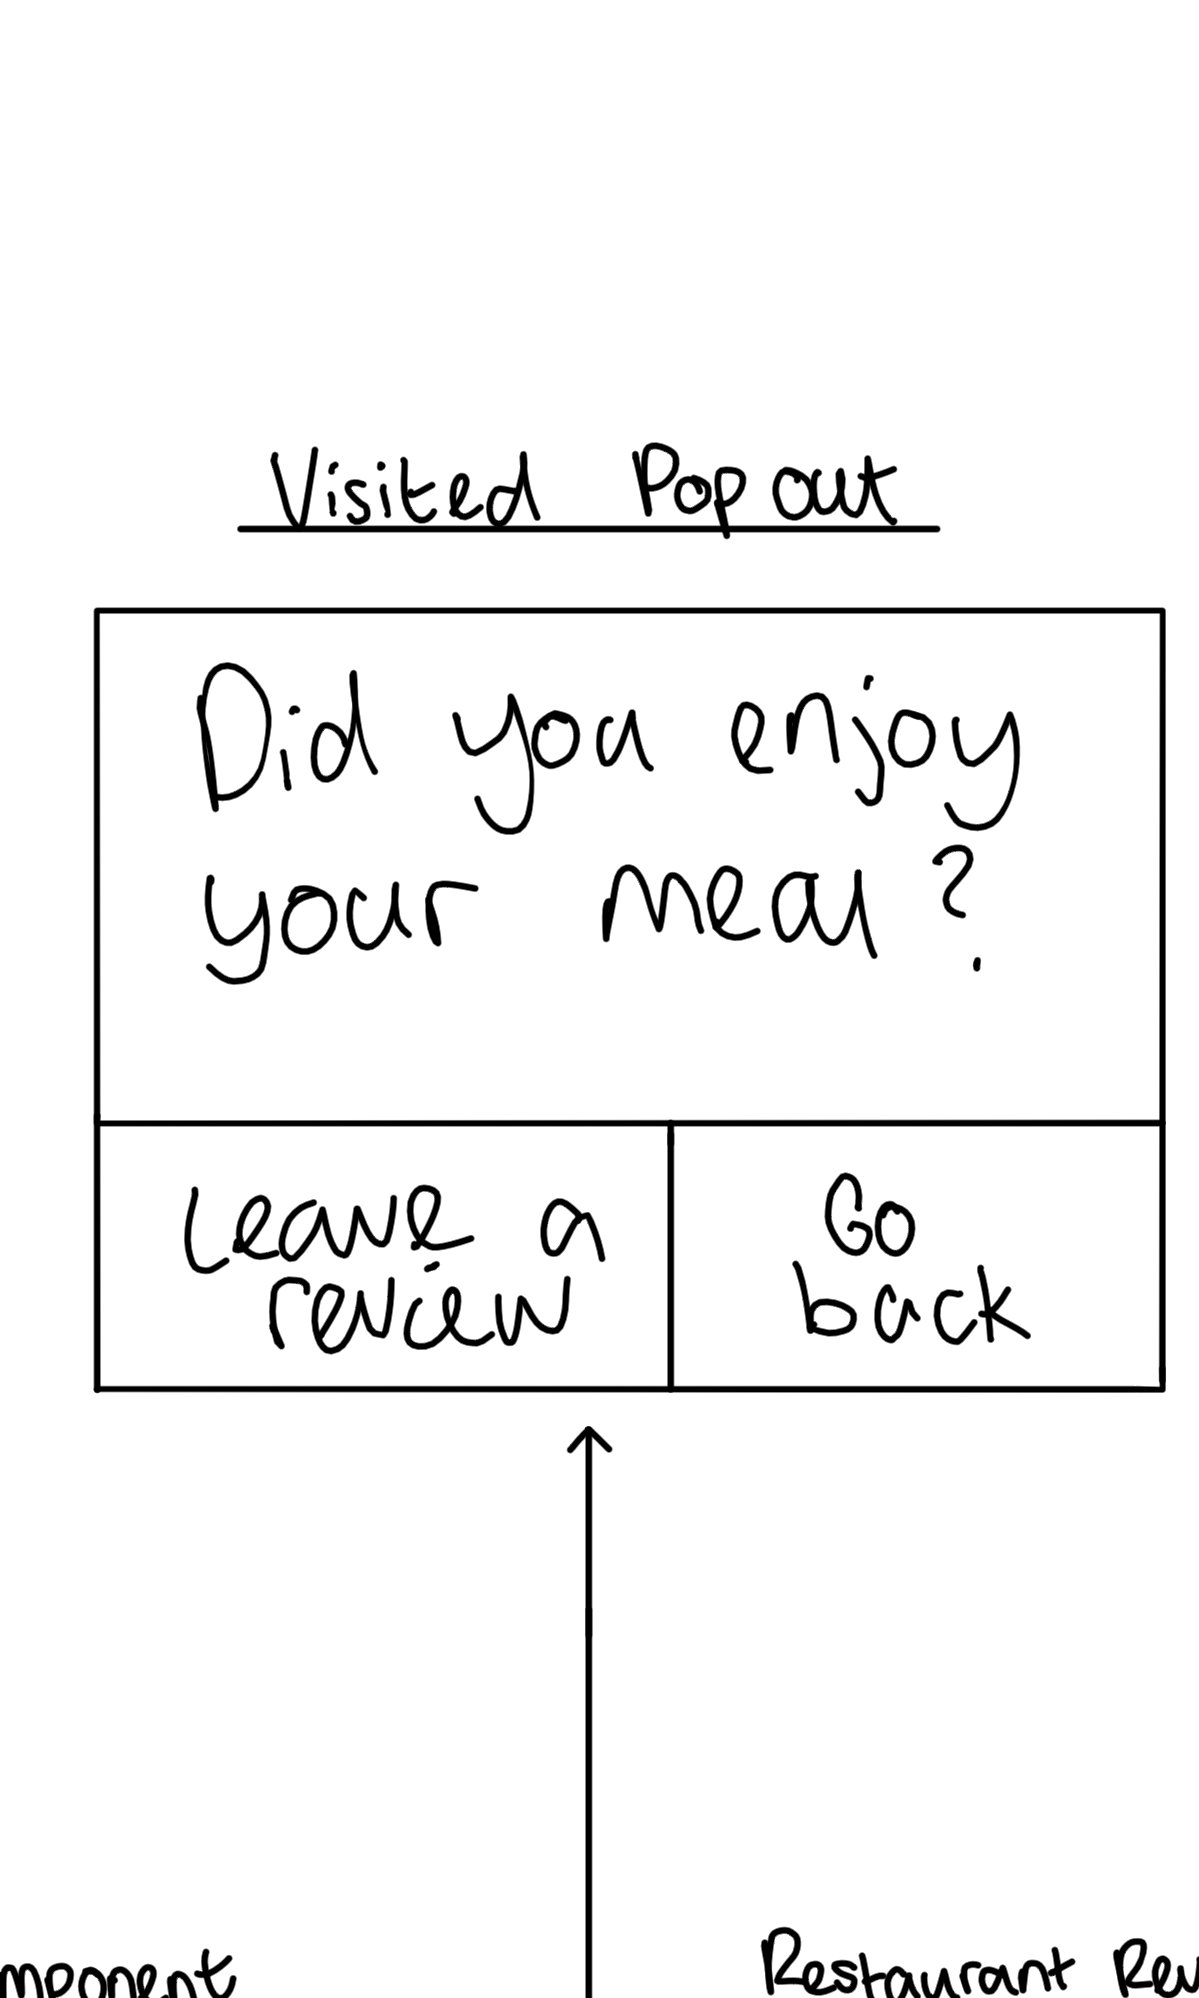 Visited Popout
Did you enjoy
your meal?
Leave a
review
Go
back
mponent
Restaurant Rev